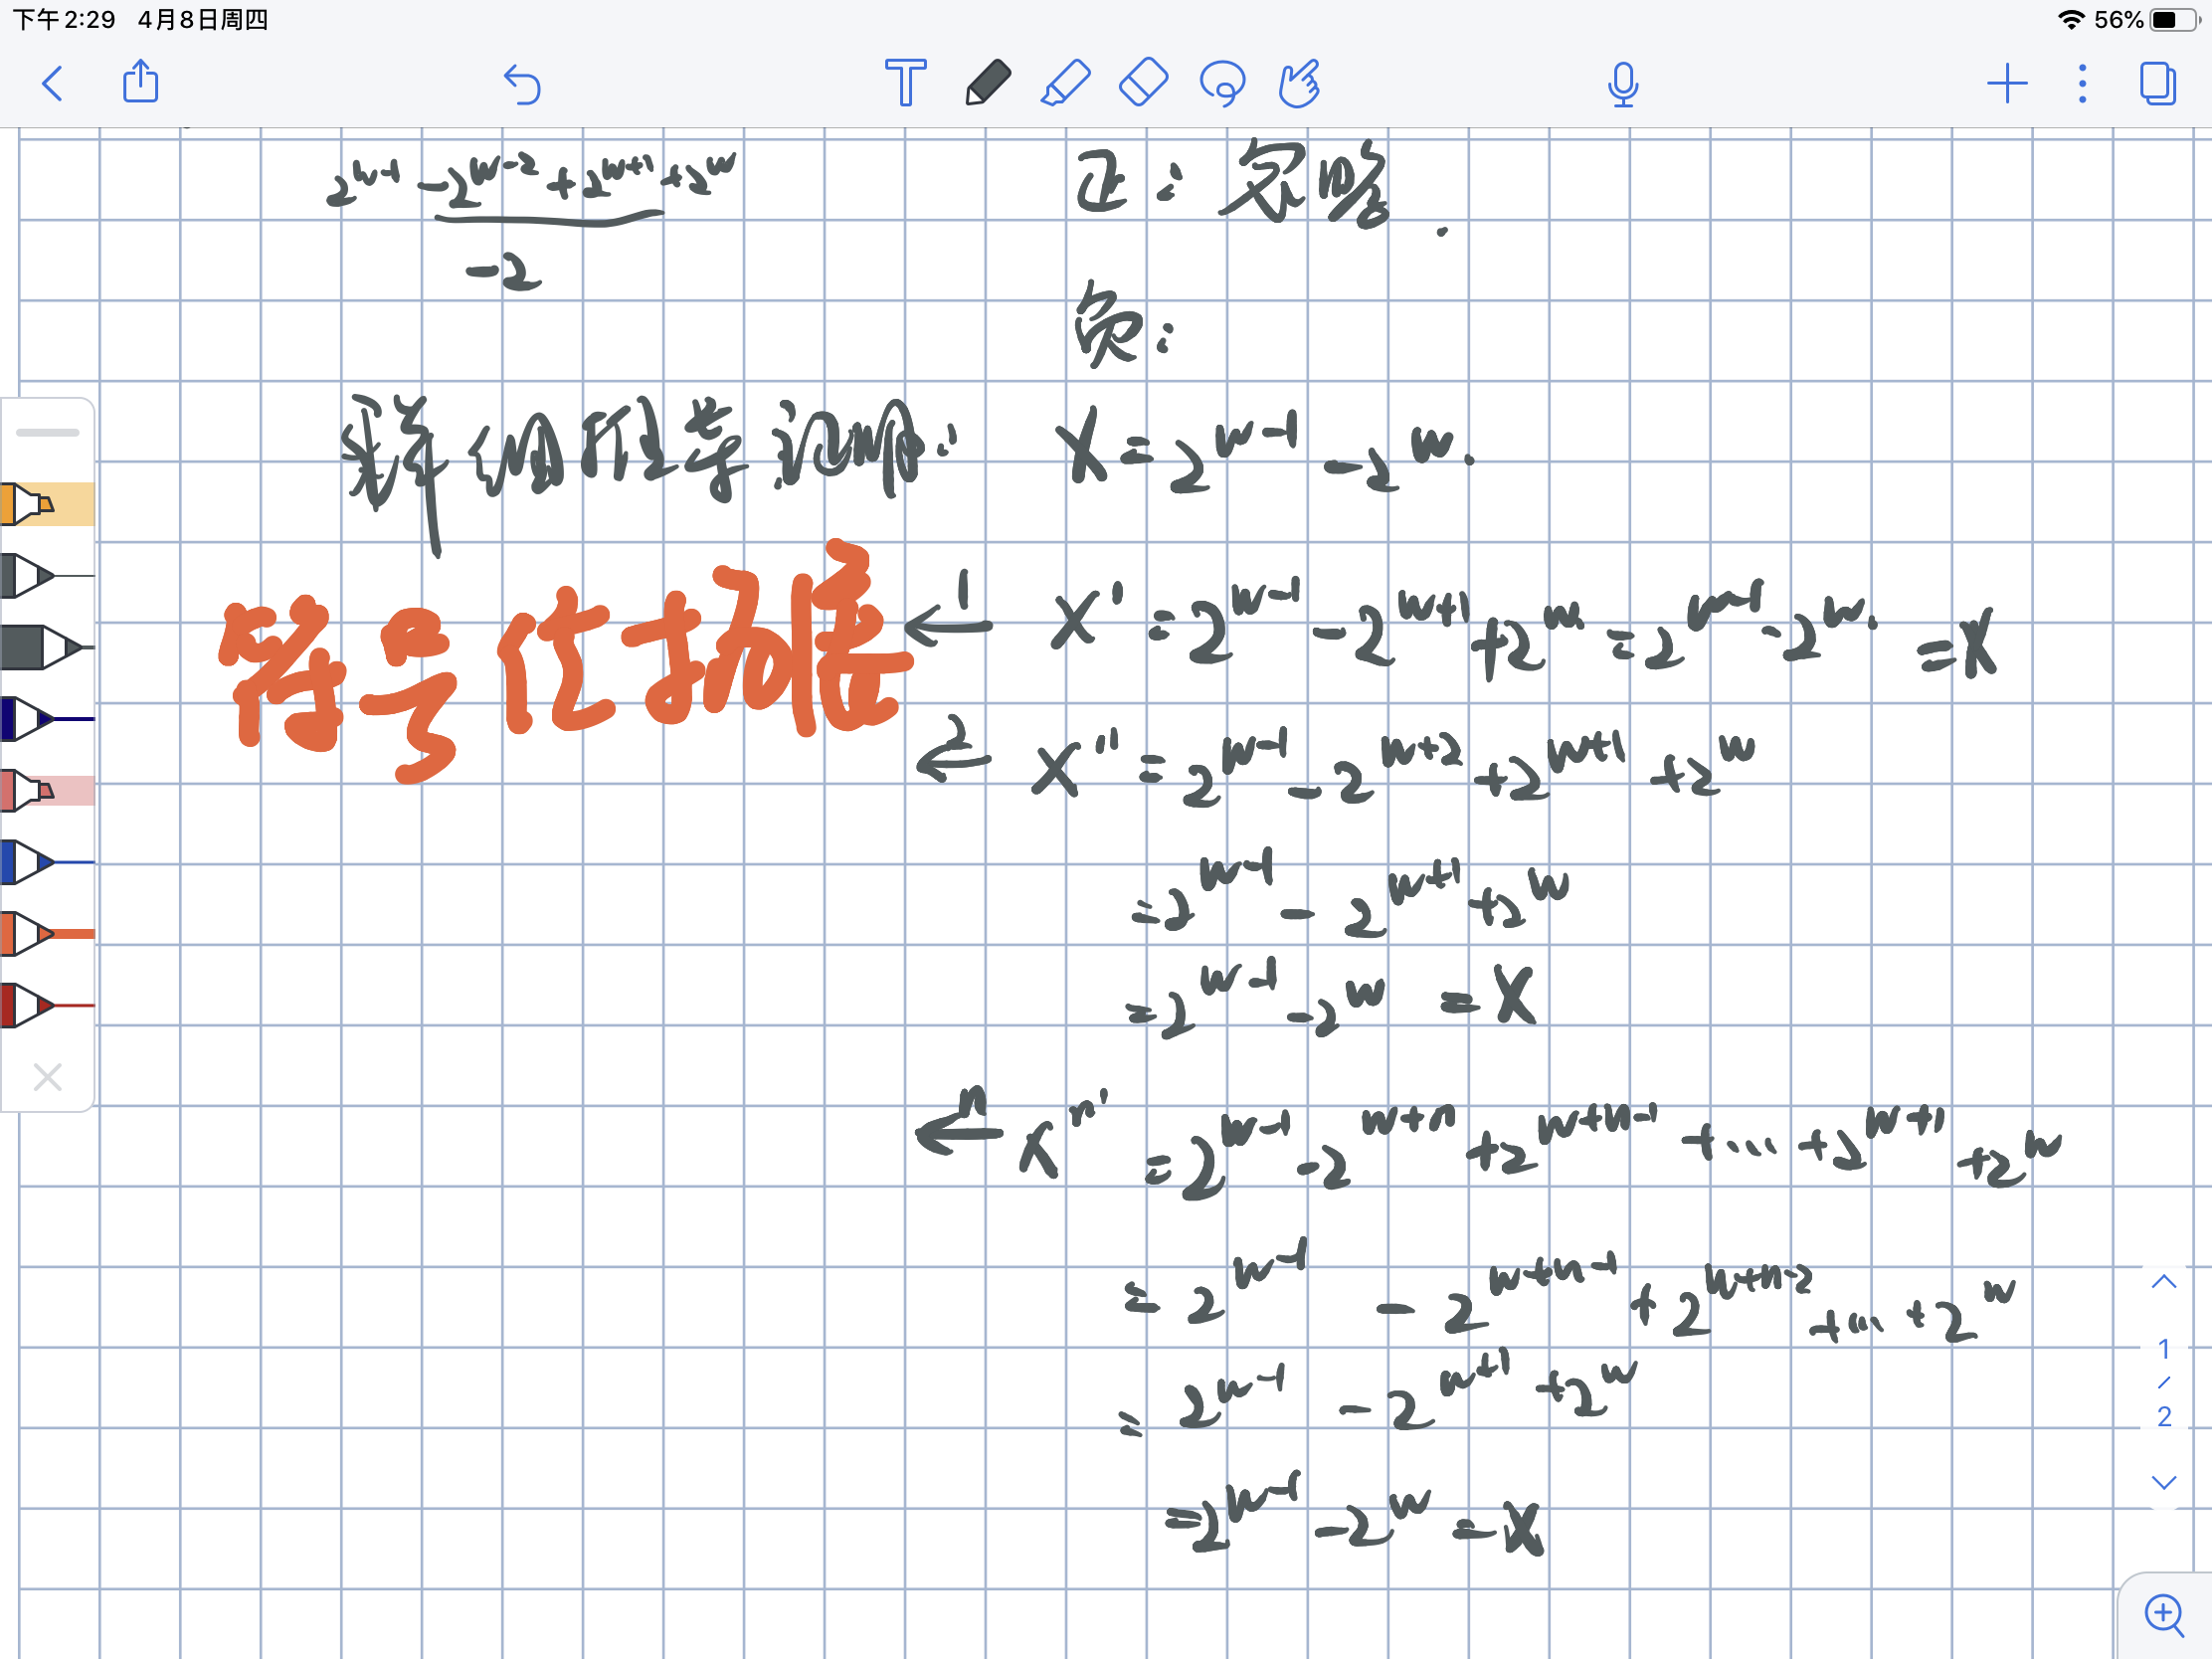 下午2:29 4月8日周四
56%
2^{w-1} -2^{w-2} +2^{w+1} +2^w
-2
正：忽略.
负：
详细推导说明：
X = 2^{w-1} -2^w.
符号位扩展
←1 X' = 2^{w-1} -2^{w+1} +2^w = 2^{w-1} -2^w. =X
←2 X'' = 2^{w-1} -2^{w+2} +2^{w+1} +2^w
=2^{w-1} - 2^{w+1} +2^w
=2^{w-1} -2^w =X
←n X^{n'} =2^{w-1} -2^{w+n} +2^{w+n-1} +... +2^{w+1} +2^w
= 2^{w-1} - 2^{w+n-1} +2^{w+n-2} +... +2^w
= 2^{w-1} -2^{w+1} +2^w
=2^{w-1} -2^w =X
1
/
2